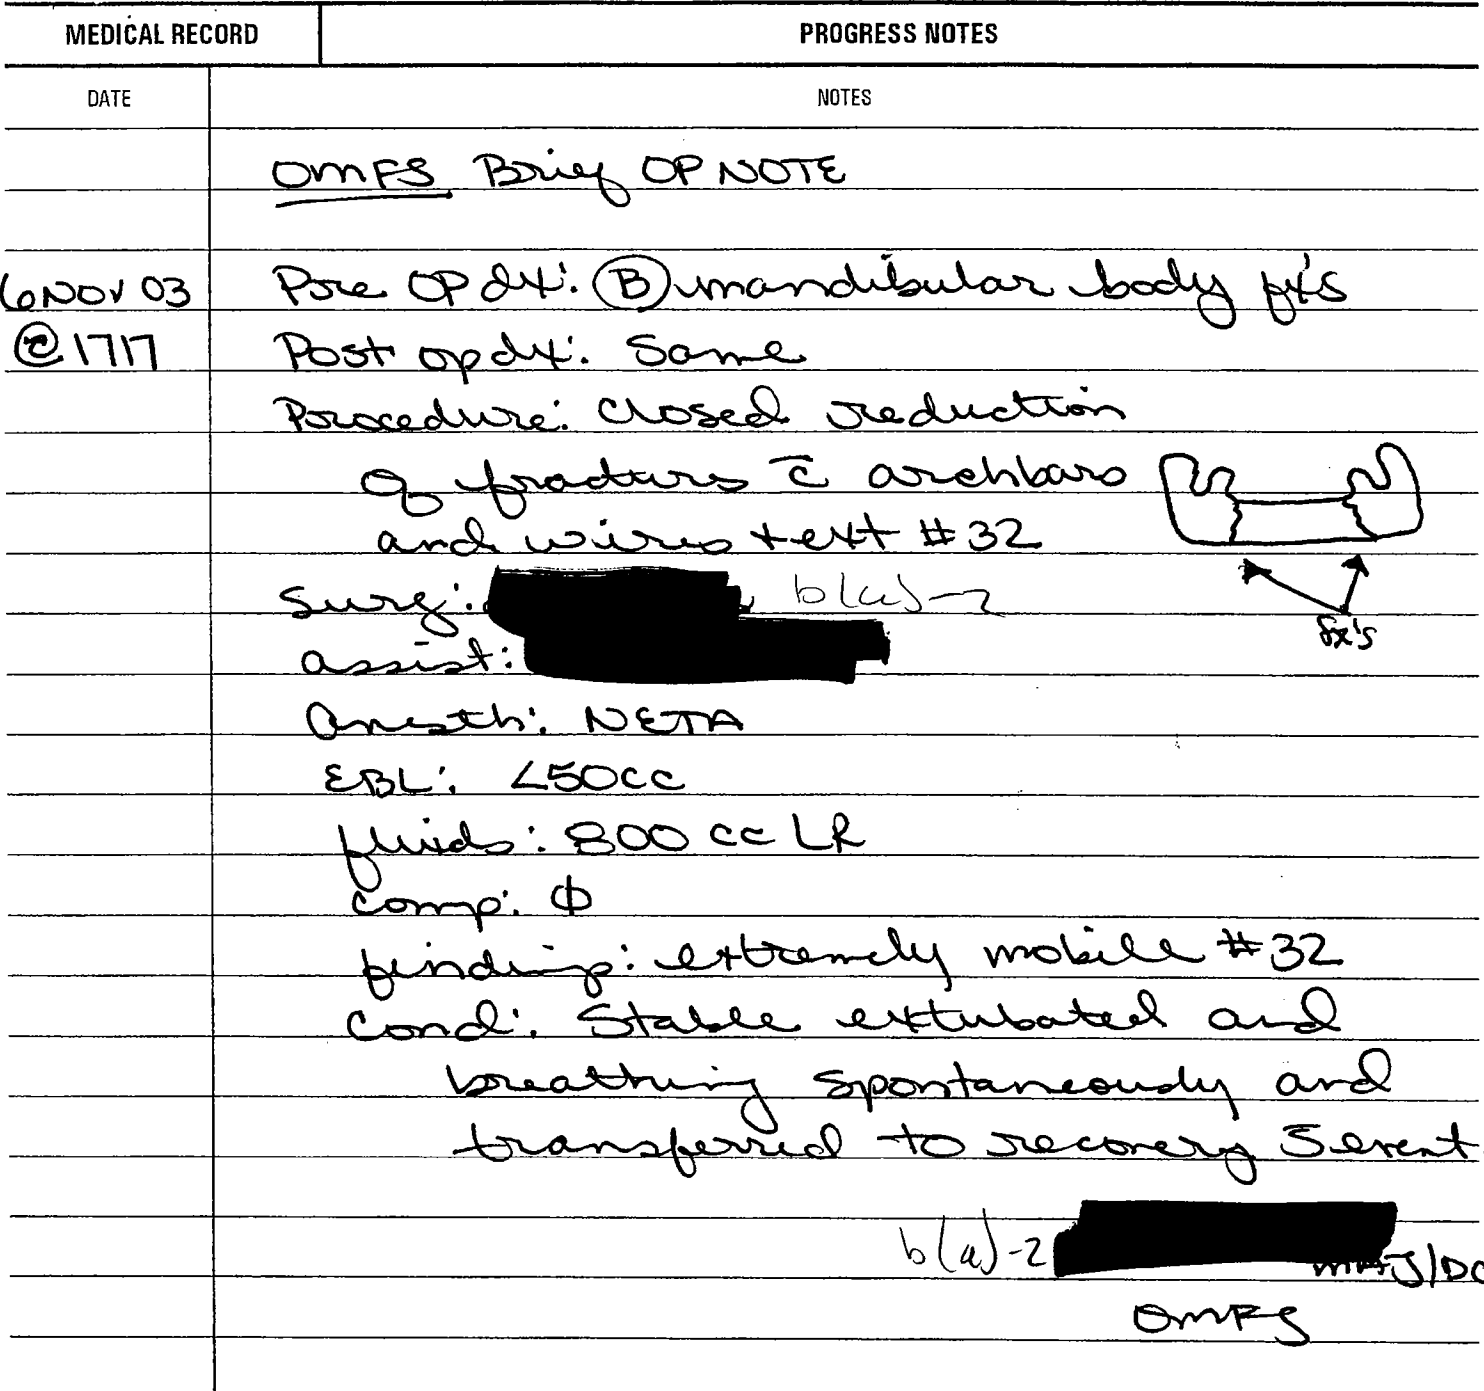 MEDICAL RECORD
PROGRESS NOTES
DATE
NOTES
OMFS Brief OP NOTE
6 NOV 03
Pre OP dx: Ⓑ mandibular body fx's
@ 1717
Post op dx: Same
Procedure: Closed reduction
of fractures c̄ archbars
and wires + ext #32
fx's
Surg: b(6)-2
assist:
Anesth: NETA
EBL: <50cc
fluids: 800 cc LR
Comp: Φ
findings: extremely mobile #32
Cond: Stable extubated and
breathing spontaneously and
transferred to recovery s̄ event
b(6)-2 MAJ/DC
OMFS